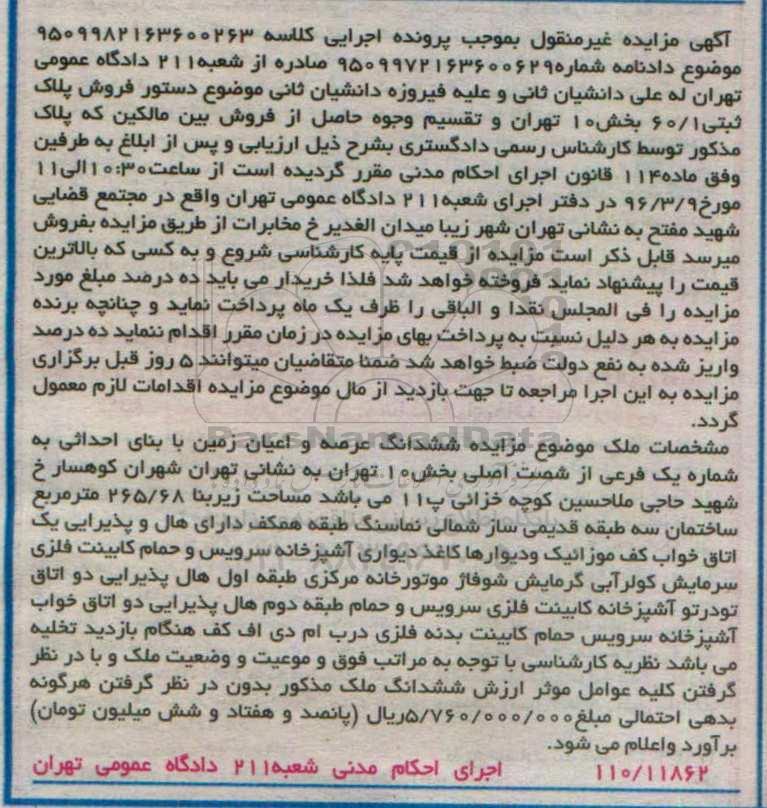 آگهی مزایده غیرمنقول بموجب پرونده اجرایی کلاسه ۹۵۰۹۹۸۲۱۶۳۶۰۰۲۶۳
موضوع دادنامه شماره۹۵۰۹۹۷۲۱۶۳۶۰۰۶۲۹ صادره از شعبه۲۱۱ دادگاه عمومی
تهران له علی دانشیان ثانی و علیه فیروزه دانشیان ثانی موضوع دستور فروش پلاک
ثبتی۶۰/۱ بخش۱۰ تهران و تقسیم وجوه حاصل از فروش بین مالکین که پلاک
مذکور توسط کارشناس رسمی دادگستری بشرح ذیل ارزیابی و پس از ابلاغ به طرفین
وفق ماده۱۱۴ قانون اجرای احکام مدنی مقرر گردیده است از ساعت۱۰:۳۰الی۱۱
مورخ۹۶/۳/۹ در دفتر اجرای شعبه۲۱۱ دادگاه عمومی تهران واقع در مجتمع قضایی
شهید مفتح به نشانی تهران شهر زیبا میدان الغدیر خ مخابرات از طریق مزایده بفروش
میرسد قابل ذکر است مزایده از قیمت پایه کارشناسی شروع و به کسی که بالاترین
قیمت را پیشنهاد نماید فروخته خواهد شد فلذا خریدار می باید ده درصد مبلغ مورد
مزایده را فی المجلس نقدا و الباقی را ظرف یک ماه پرداخت نماید و چنانچه برنده
مزایده به هر دلیل نسبت به پرداخت بهای مزایده در زمان مقرر اقدام ننماید ده درصد
واریز شده به نفع دولت ضبط خواهد شد ضمنا متقاضیان میتوانند ۵ روز قبل برگزاری
مزایده به این اجرا مراجعه تا جهت بازدید از مال موضوع مزایده اقدامات لازم معمول
گردد.
ParsNamadData
مشخصات ملک موضوع مزایده ششدانگ عرصه و اعیان زمین با بنای احداثی به
شماره یک فرعی از شصت اصلی بخش۱۰ تهران به نشانی تهران شهران کوهسار خ
شهید حاجی ملاحسین کوچه خزائی پ۱۱ می باشد مساحت زیربنا ۲۶۵/۶۸ مترمربع
ساختمان سه طبقه قدیمی ساز شمالی نماسنگ طبقه همکف دارای هال و پذیرایی یک
اتاق خواب کف موزائیک ودیوارها کاغذ دیواری آشپزخانه سرویس و حمام کابینت فلزی
سرمایش کولرآبی گرمایش شوفاژ موتورخانه مرکزی طبقه اول هال پذیرایی دو اتاق
تودرتو آشپزخانه کابینت فلزی سرویس و حمام طبقه دوم هال پذیرایی دو اتاق خواب
آشپزخانه سرویس حمام کابینت بدنه فلزی درب ام دی اف کف هنگام بازدید تخلیه
می باشد نظریه کارشناسی با توجه به مراتب فوق و موعیت و وضعیت ملک و با در نظر
گرفتن کلیه عوامل موثر ارزش ششدانگ ملک مذکور بدون در نظر گرفتن هرگونه
بدهی احتمالی مبلغ۵/۷۶۰/۰۰۰/۰۰۰ریال (پانصد و هفتاد و شش میلیون تومان)
برآورد واعلام می شود.
۱۱۰/۱۱۸۶۲ اجرای احکام مدنی شعبه۲۱۱ دادگاه عمومی تهران